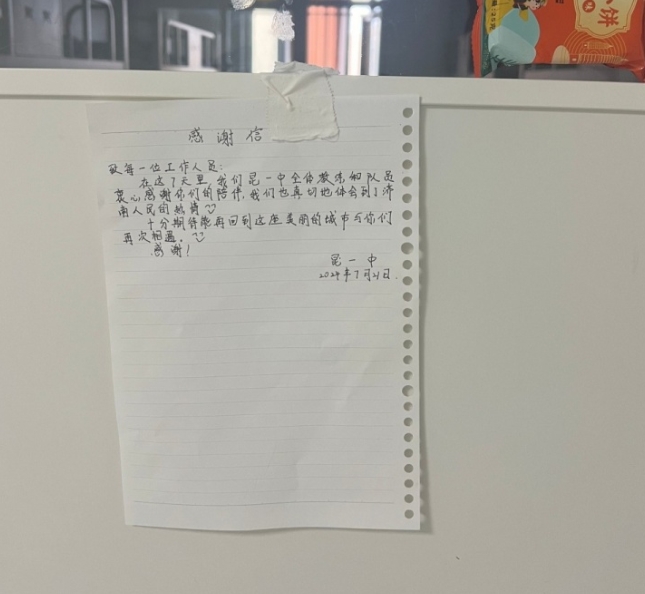 感谢信
致每一位工作人员:
在这7天里,我们昆一中全体教练和队员
衷心感谢你们的陪伴,我们也真切地体会到了济
南人民的热情
十分期待能再回到这座美丽的城市与你们
再次相遇。
感谢!
昆一中
2024年7月21日.
饼